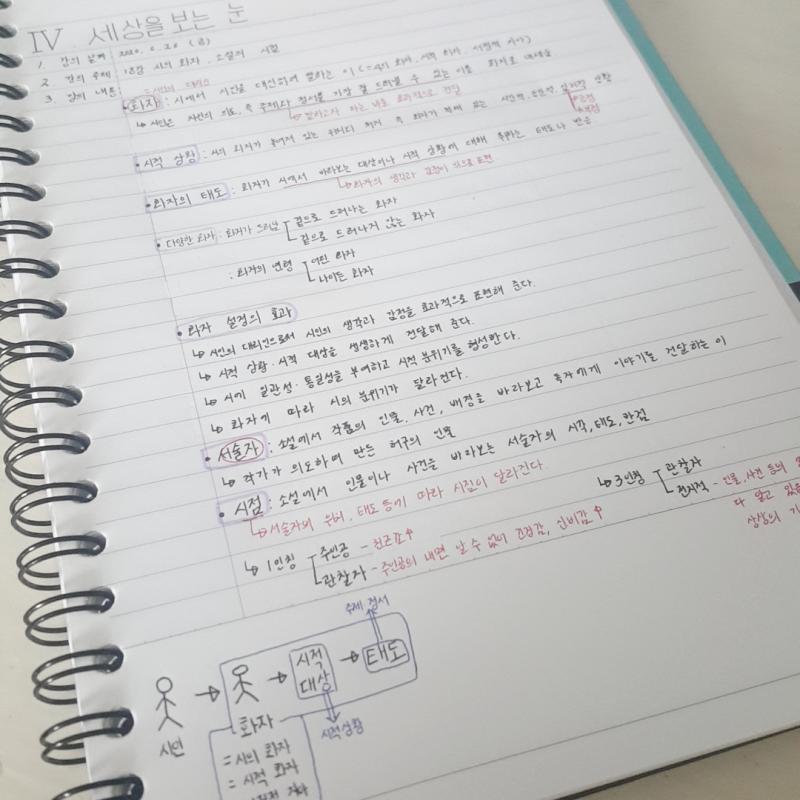 Ⅳ 세상을 보는 눈
1. 강의 날짜 2020. 6. 20 (금)
2. 강의 주제 : 18강 시의 화자, 소설의 시점
3. 강의 내용
• 화자 : 시에서 시인을 대신하여 말하는 이
↳ 시인은 자신의 의도, 즉 주제와 정서를 가장 잘 드러낼 수 있는 이를 화자로 내세움
↳ 말하고자 하는 바를 효과적으로 전달
• 시적 상황 : 시의 화자가 놓여 있는 처지 즉 화자가 처해 있는 시간적, 공간적, 심리적 상황
• 화자의 태도 : 화자가 시에서 바라보는 대상이나 시적 상황에 대해 취하는 태도나 반응
↳ 화자의 생각과 감정이 있으로 표현
• 다양한 화자 : 화자가 드러남 겉으로 드러나는 화자
겉으로 드러나지 않는 화자
: 화자의 연령 어린 화자
나이든 화자
• 화자 설정의 효과
↳ 시인의 대리인으로서 시인의 생각과 감정을 효과적으로 표현해 준다.
↳ 시적 상황·시적 대상을 생생하게 전달해 준다.
↳ 시에 일관성·통일성을 부여하고 시적 분위기를 형성한다.
↳ 화자에 따라 시의 분위기가 달라진다.
• 서술자 : 소설에서 작품의 인물, 사건, 배경을 바라보고 독자에게 이야기를 전달하는 이
↳ 작가가 의도하여 만든 허구의 인물
• 시점 : 소설에서 인물이나 사건을 바라보는 서술자의 시각, 태도, 관점
↳ 서술자의 위치, 태도 등에 따라 시점이 달라진다.
↳ 1인칭 주인공 - 친근감↑
관찰자 - 주인공의 내면 알 수 없어 긴장감, 신비감↑
↳ 3인칭 관찰자
전지적 - 인물, 사건 등의
다 알고 있음
상상의
주제, 정서
시인 → → 시적 대상 → 태도
화자
시적상황
= 시의 화자
= 시적 화자